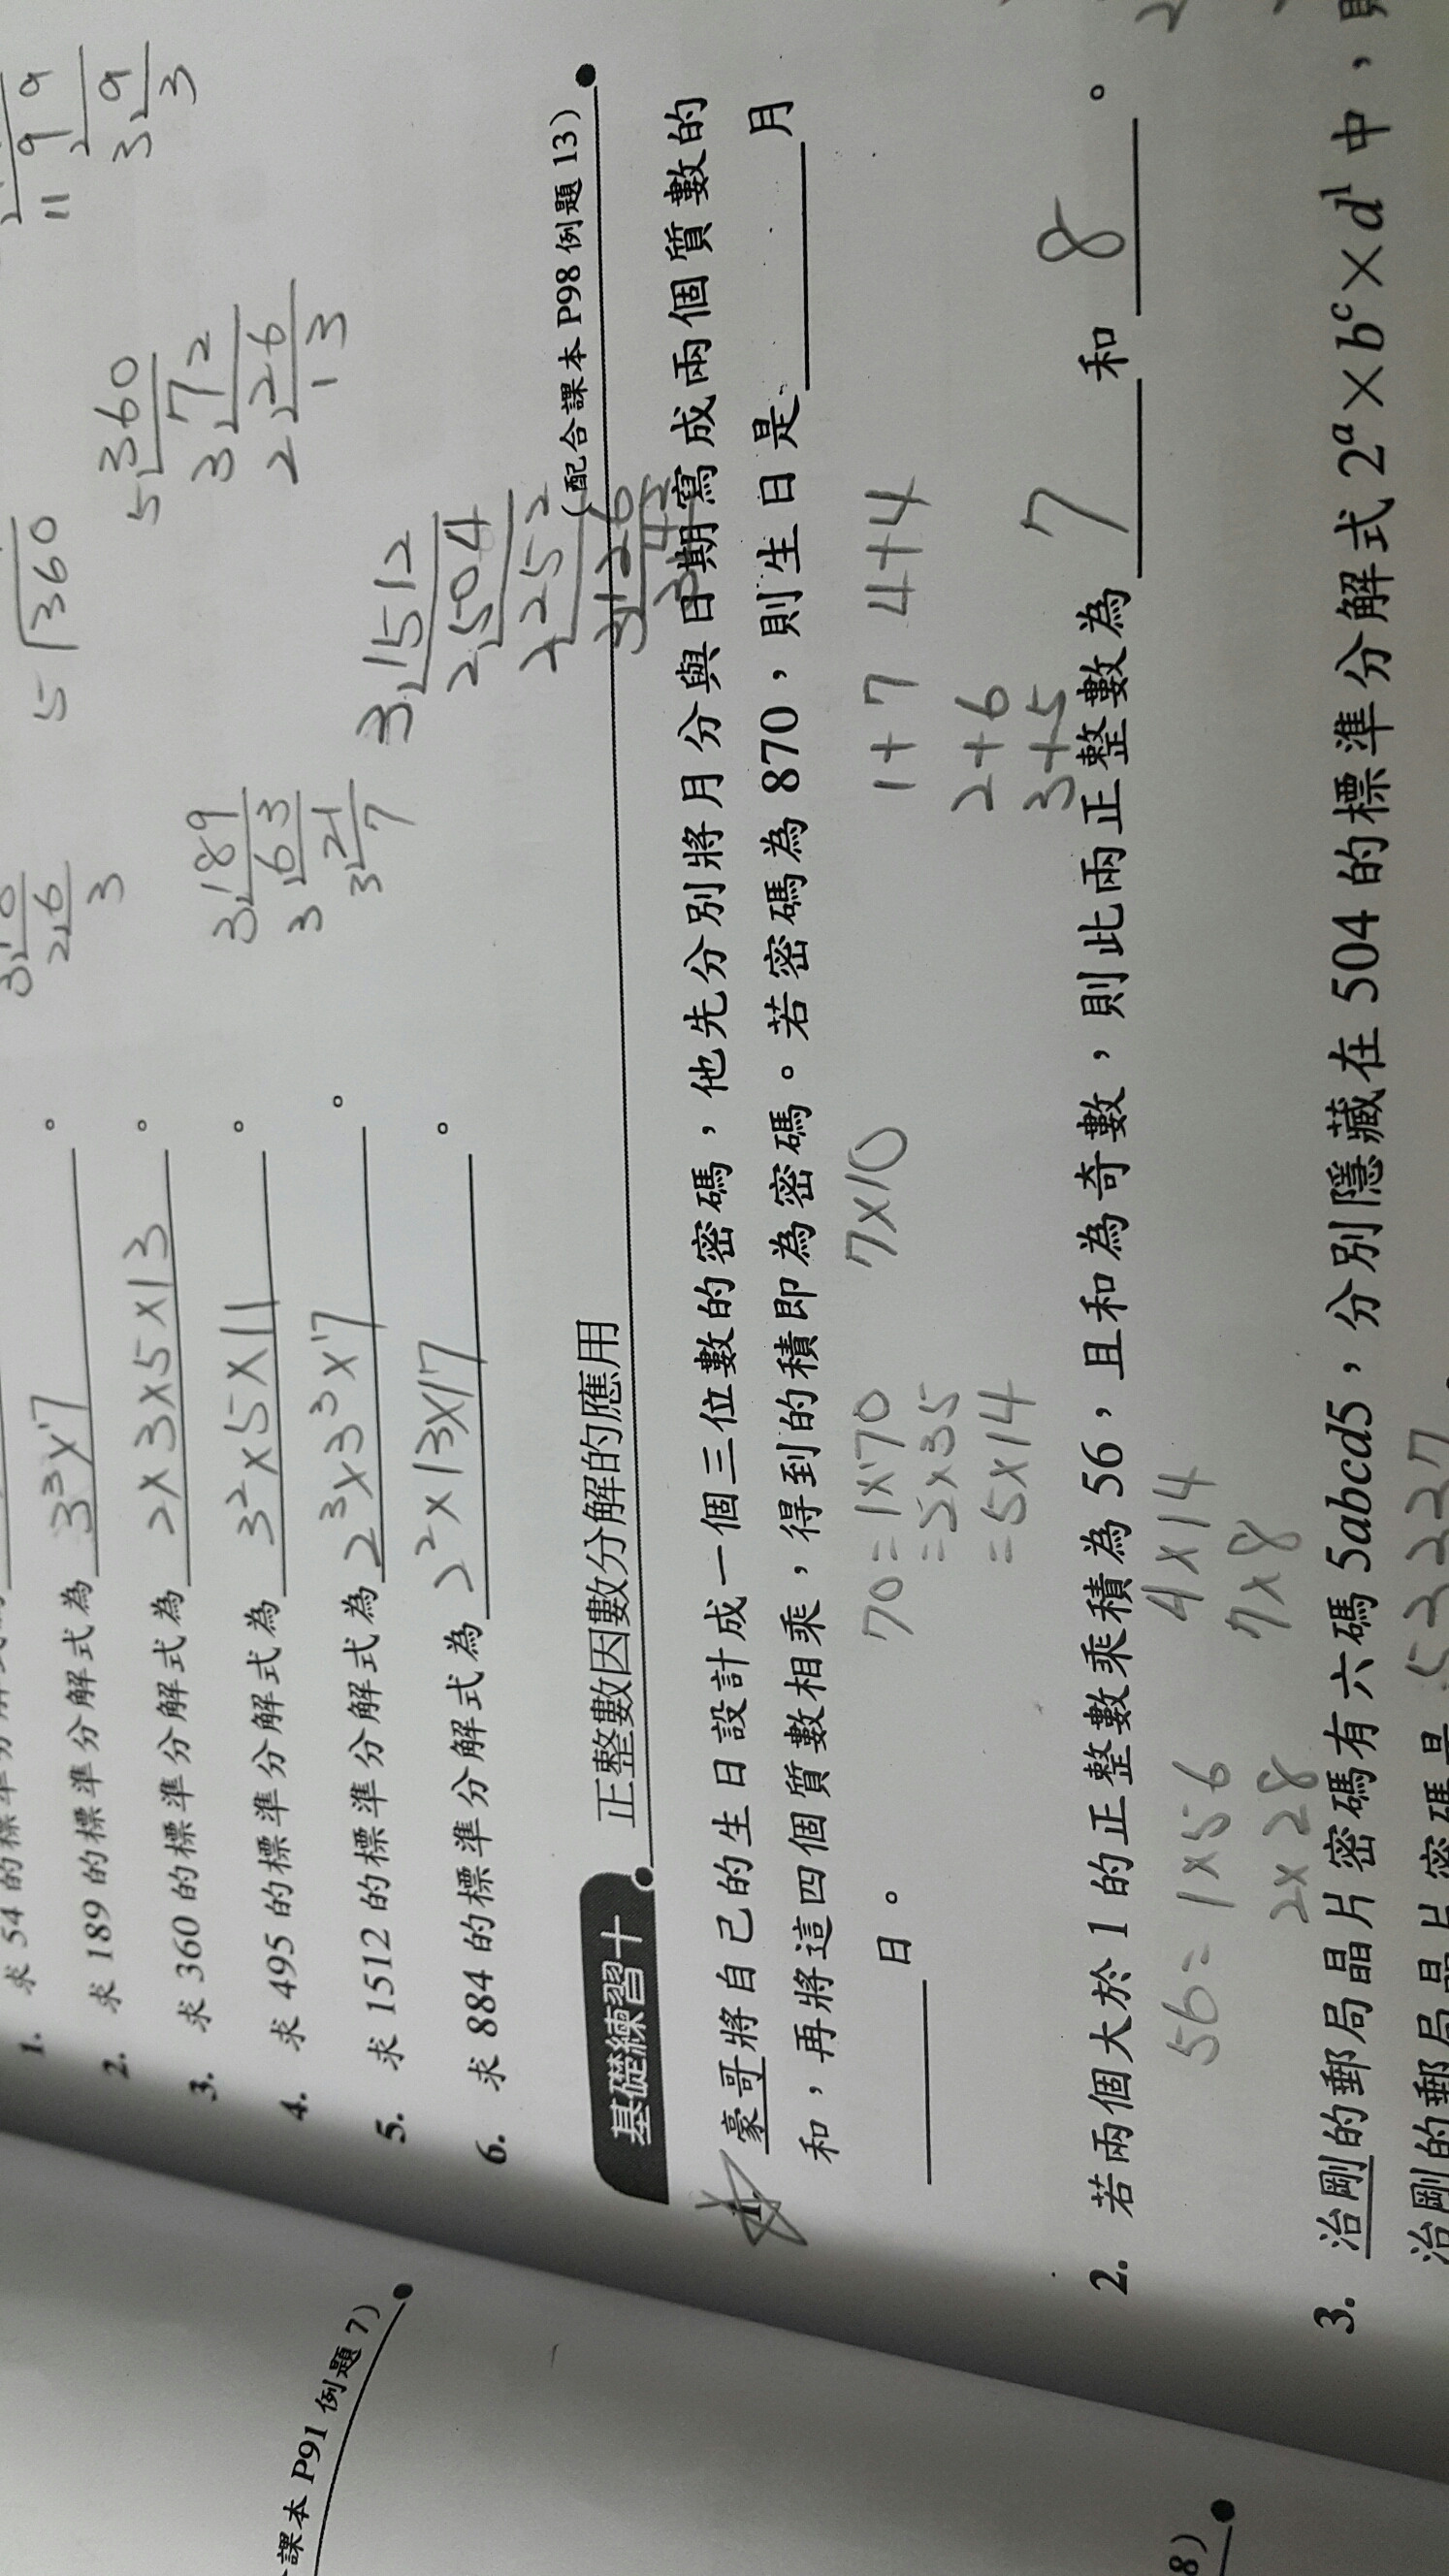 1. 求 54 的標準分解式為
2. 求 189 的標準分解式為 3³×7 。
3. 求 360 的標準分解式為 2×3×5×13 。
4. 求 495 的標準分解式為 3²×5×11 。
5. 求 1512 的標準分解式為 2³×3³×7 。
6. 求 884 的標準分解式為 2²×13×17 。
26
3
3 189
3 63
3 21
7
5 360
5 360
3 72
2 26
13
11 99
3 9
3
3 1512
2 504
2 252
3 126
3 42
基礎練習十 正整數因數分解的應用 (配合課本 P98 例題 13)
豪哥將自己的生日設計成一個三位數的密碼，他先分別將月分與日期寫成兩個質數的
和，再將這四個質數相乘，得到的積即為密碼。若密碼為 870，則生日是 月
日。
70=1×70 7×10 1+7 4+4
=2×35 2+6
=5×14 3+5
2. 若兩個大於 1 的正整數乘積為 56，且和為奇數，則此兩正整數為 7 和 8 。
56=1×56 4×14
2×28 7×8
3. 治剛的郵局晶片密碼有六碼 5abcd5，分別隱藏在 504 的標準分解式 2ᵃ×bᶜ×d¹ 中，則
治剛的郵局晶片密碼是 53227
課本 P91 例題 7)
8)